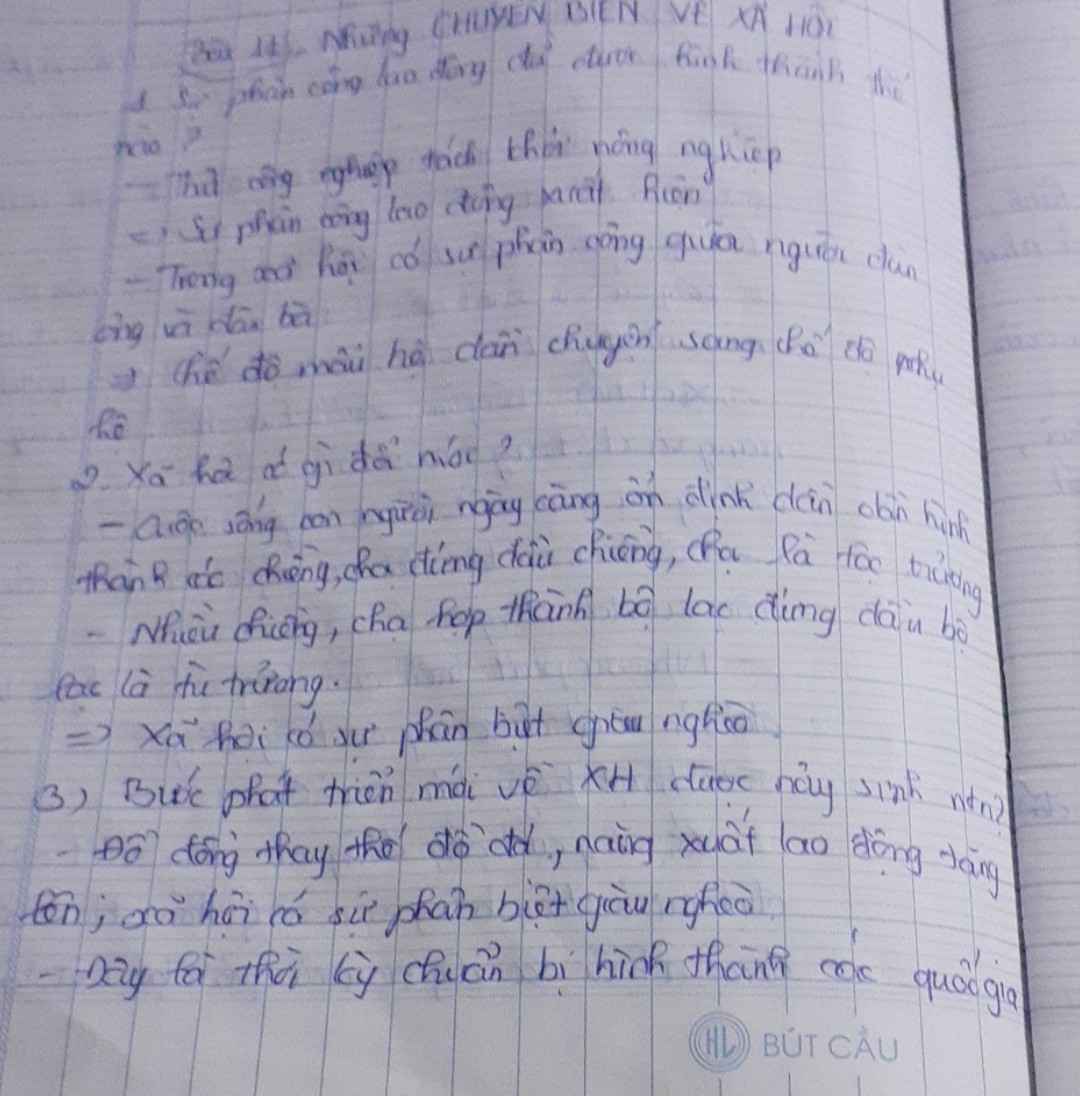 Bài 11. Những CHUYỂN BIẾN VỀ XÃ HỘI
1 Sự phân công lao động đã được hình thành thế
nào ?
- Thủ công nghiệp tách khỏi nông nghiệp
=> Sự phân công lao động xuất hiện
- Trong xã hội có sự phân công giữa người đàn
ông và đàn bà
=> Chế độ mẫu hệ dần chuyển sang chế độ phụ
hệ
2. Xã hội có gì đổi mới ?
- Cuộc sống con người ngày càng ổn định dần dần hình
thành các chiềng, chạ đứng đầu chiềng, chạ là tộc trưởng
- Nhiều chiềng, chạ hợp thành bộ lạc đứng đầu bộ
lạc là tù trưởng.
=> Xã hội có sự phân biệt giàu nghèo
3) Bước phát triển mới về XH được nảy sinh ntn?
- Đồ đồng thay thế đồ đá, năng xuất lao động tăng
lên; xã hội có sự phân biệt giàu nghèo
- Đây là thời kỳ chuẩn bị hình thành các quốc gia
HL BÚT CẦU